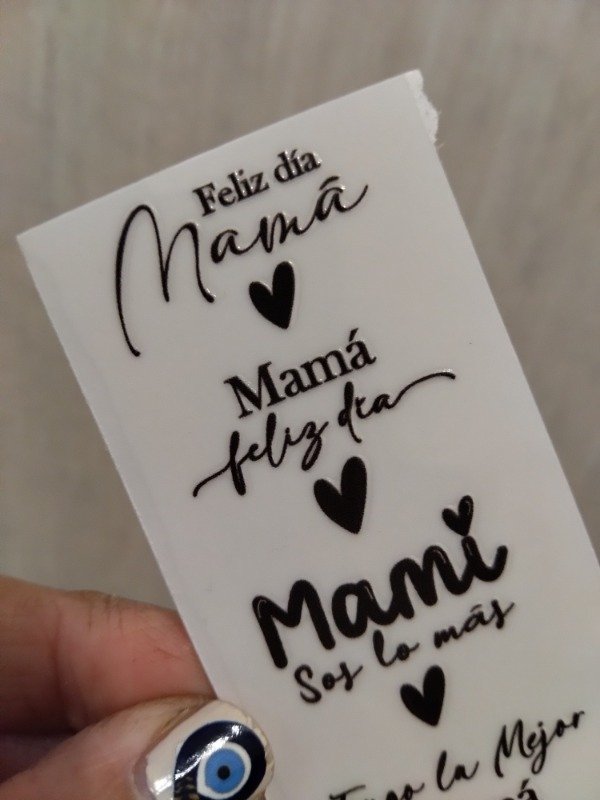 Feliz día
Mamá
Mamá
feliz día
Mami
Sos lo más
la Mejor